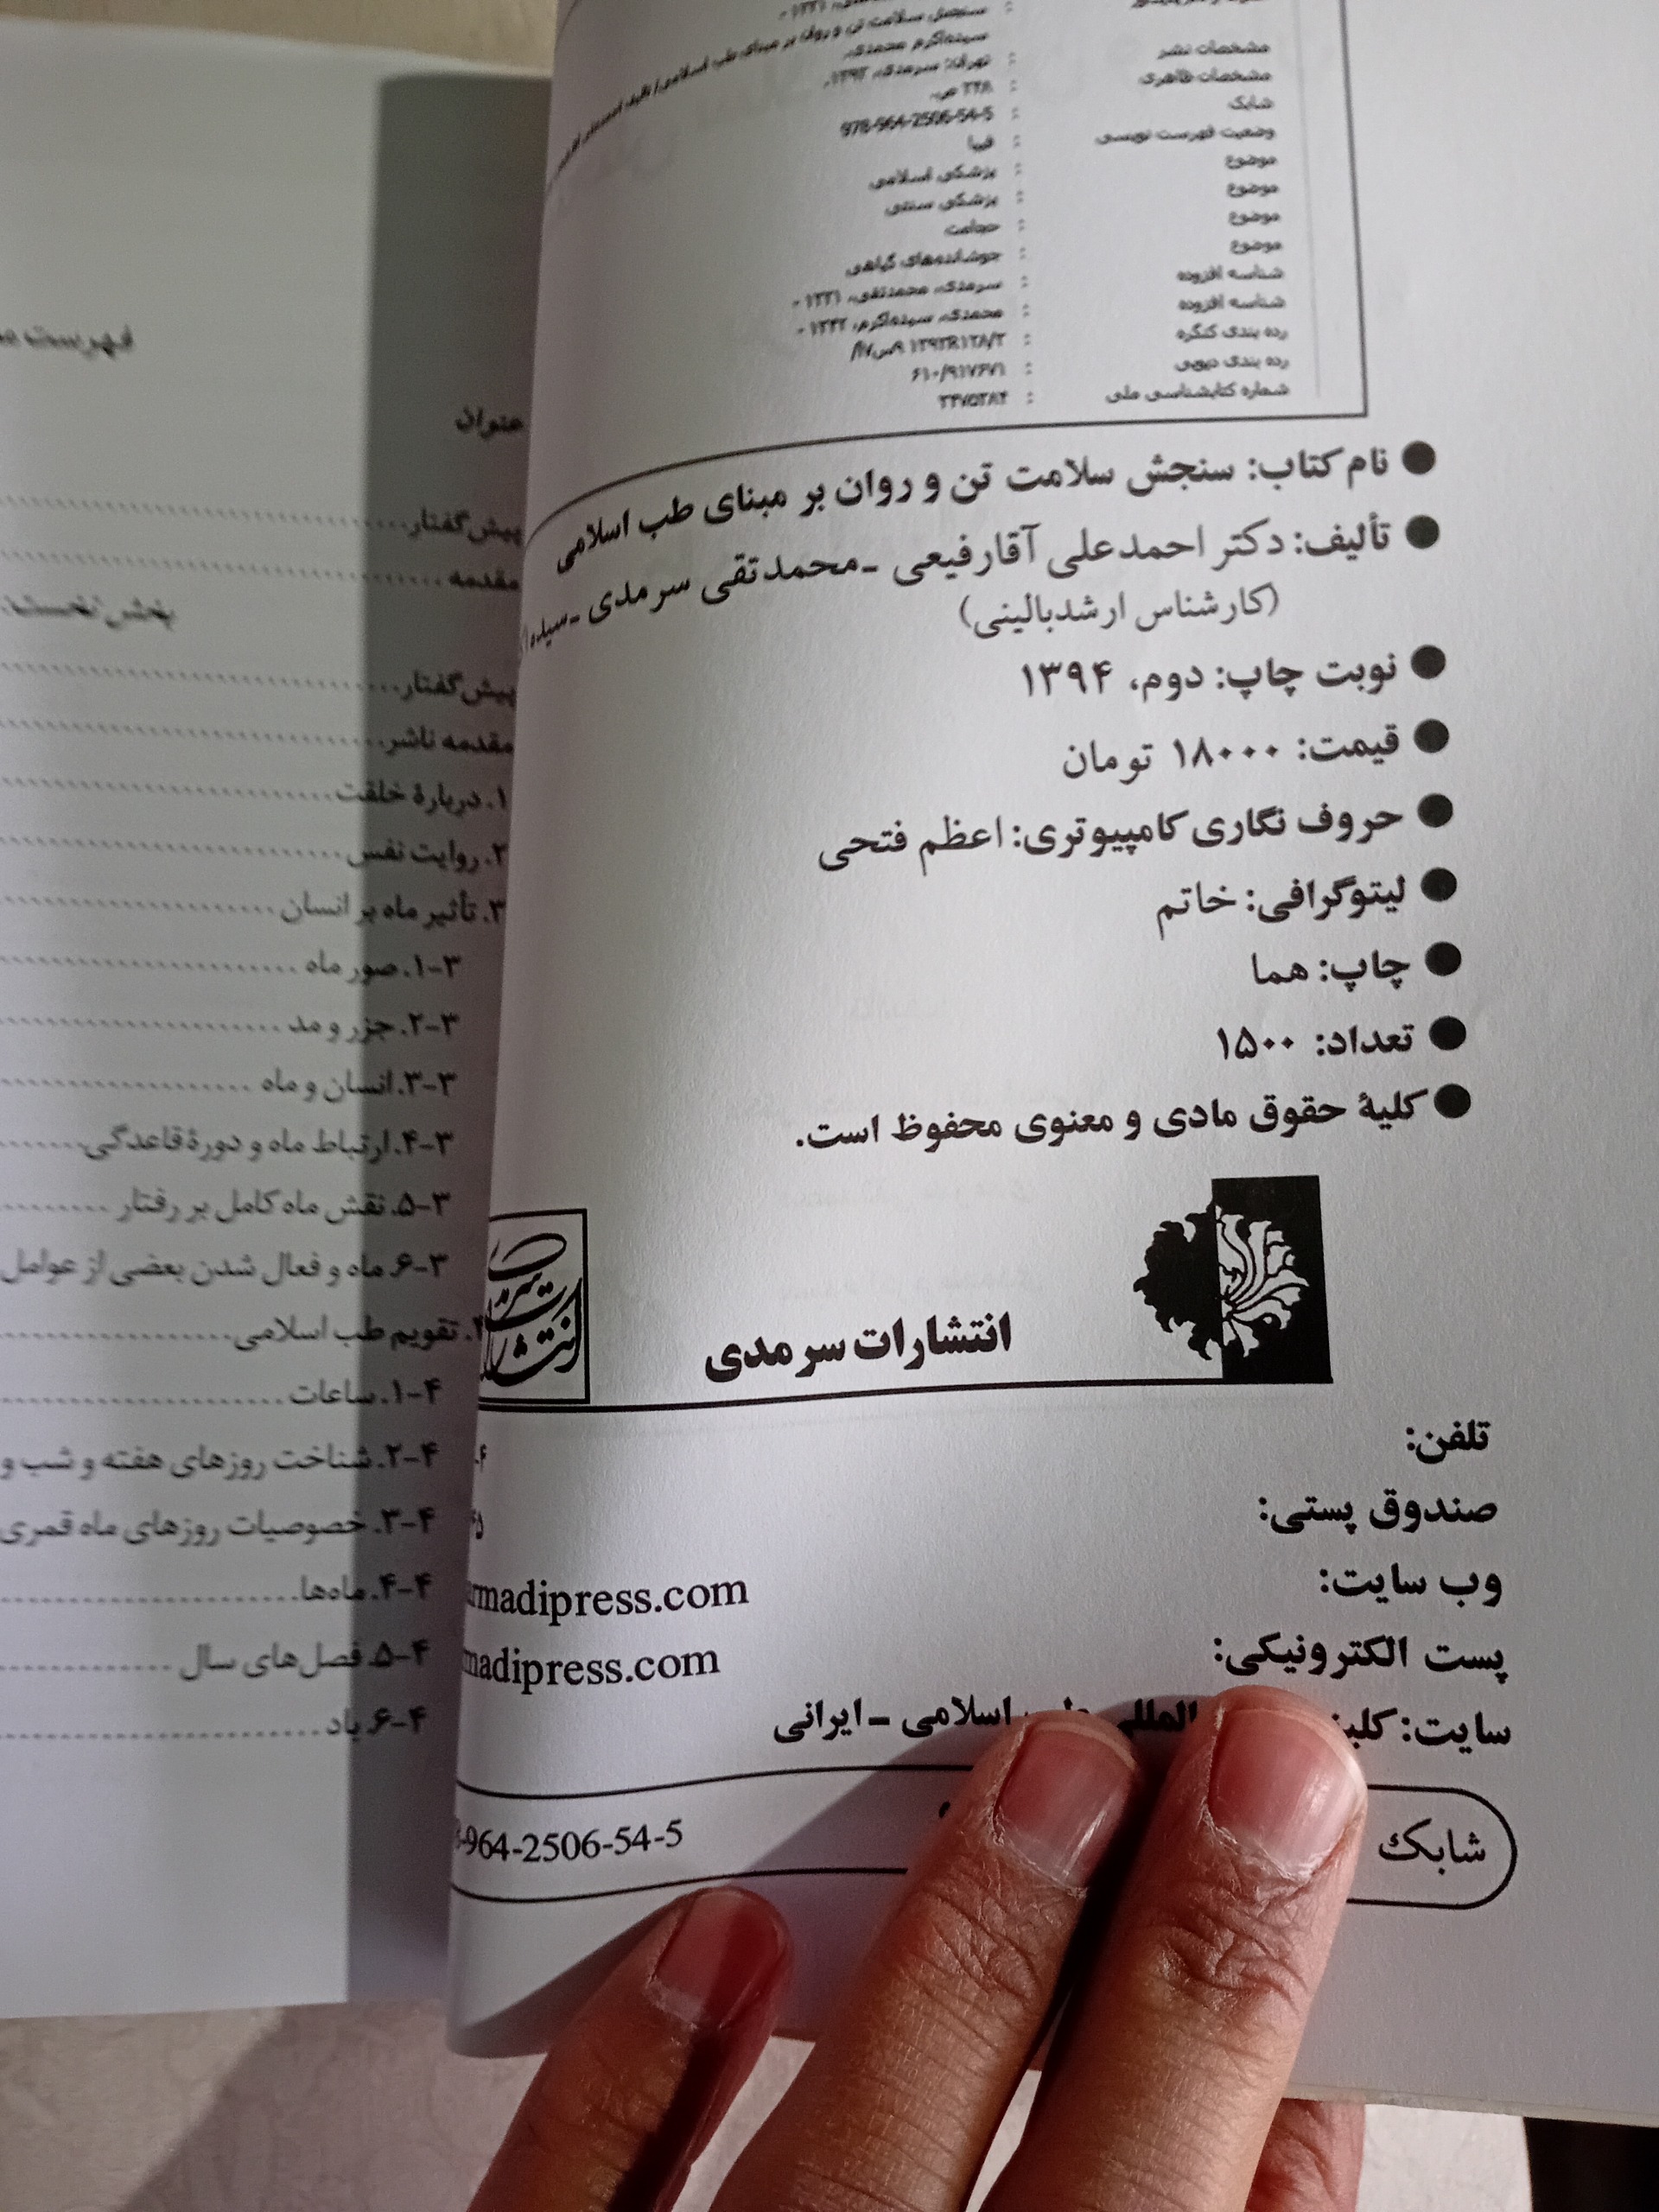 مشخصات نشر : تهران: سرمدی، ۱۳۹۳.
مشخصات ظاهری : ۲۲۸ ص.
شابک : 978-964-2506-54-5
وضعیت فهرست نویسی : فیپا
موضوع : پزشکی اسلامی
موضوع : پزشکی سنتی
موضوع : حجامت
موضوع : جوشانده‌های گیاهی
شناسه افزوده : سرمدی، محمدتقی، ۱۳۳۱ -
شناسه افزوده : محمدی، سیده‌اکرم، ۱۳۴۲ -
رده بندی کنگره :
رده بندی دیویی : ۶۱۰/۹۱۷۶۷۱
شماره کتابشناسی ملی : ۳۴۷۵۳۸۴
● نام کتاب: سنجش سلامت تن و روان بر مبنای طب اسلامی
● تألیف: دکتر احمدعلی آقارفیعی ـ محمدتقی سرمدی ـ سیده
(کارشناس ارشدبالینی)
● نوبت چاپ: دوم، ۱۳۹۴
● قیمت: ۱۸۰۰۰ تومان
● حروف نگاری کامپیوتری: اعظم فتحی
● لیتوگرافی: خاتم
● چاپ: هما
● تعداد: ۱۵۰۰
● کلیهٔ حقوق مادی و معنوی محفوظ است.
انتشارات سرمدی
تلفن:
صندوق پستی:
وب سایت: rmadipress.com
پست الکترونیکی: madipress.com
سایت: المللی طب اسلامی ـ ایرانی
شابک 964-2506-54-5
فهرست
عنوان
پیش‌گفتار
مقدمه
بخش نخست:
پیش‌گفتار
مقدمه ناشر
۱. دربارهٔ خلقت
۲. روایت نفس
۳. تأثیر ماه بر انسان
۳-۱. صور ماه
۳-۲. جزر و مد
۳-۳. انسان و ماه
۳-۴. ارتباط ماه و دورهٔ قاعدگی
۳-۵. نقش ماه کامل بر رفتار
۳-۶. ماه و فعال شدن بعضی از عوامل
۴. تقویم طب اسلامی
۴-۱. ساعات
۴-۲. شناخت روزهای هفته و شب و
۴-۳. خصوصیات روزهای ماه قمری
۴-۴. ماه‌ها
۴-۵. فصل‌های سال
۴-۶. باد